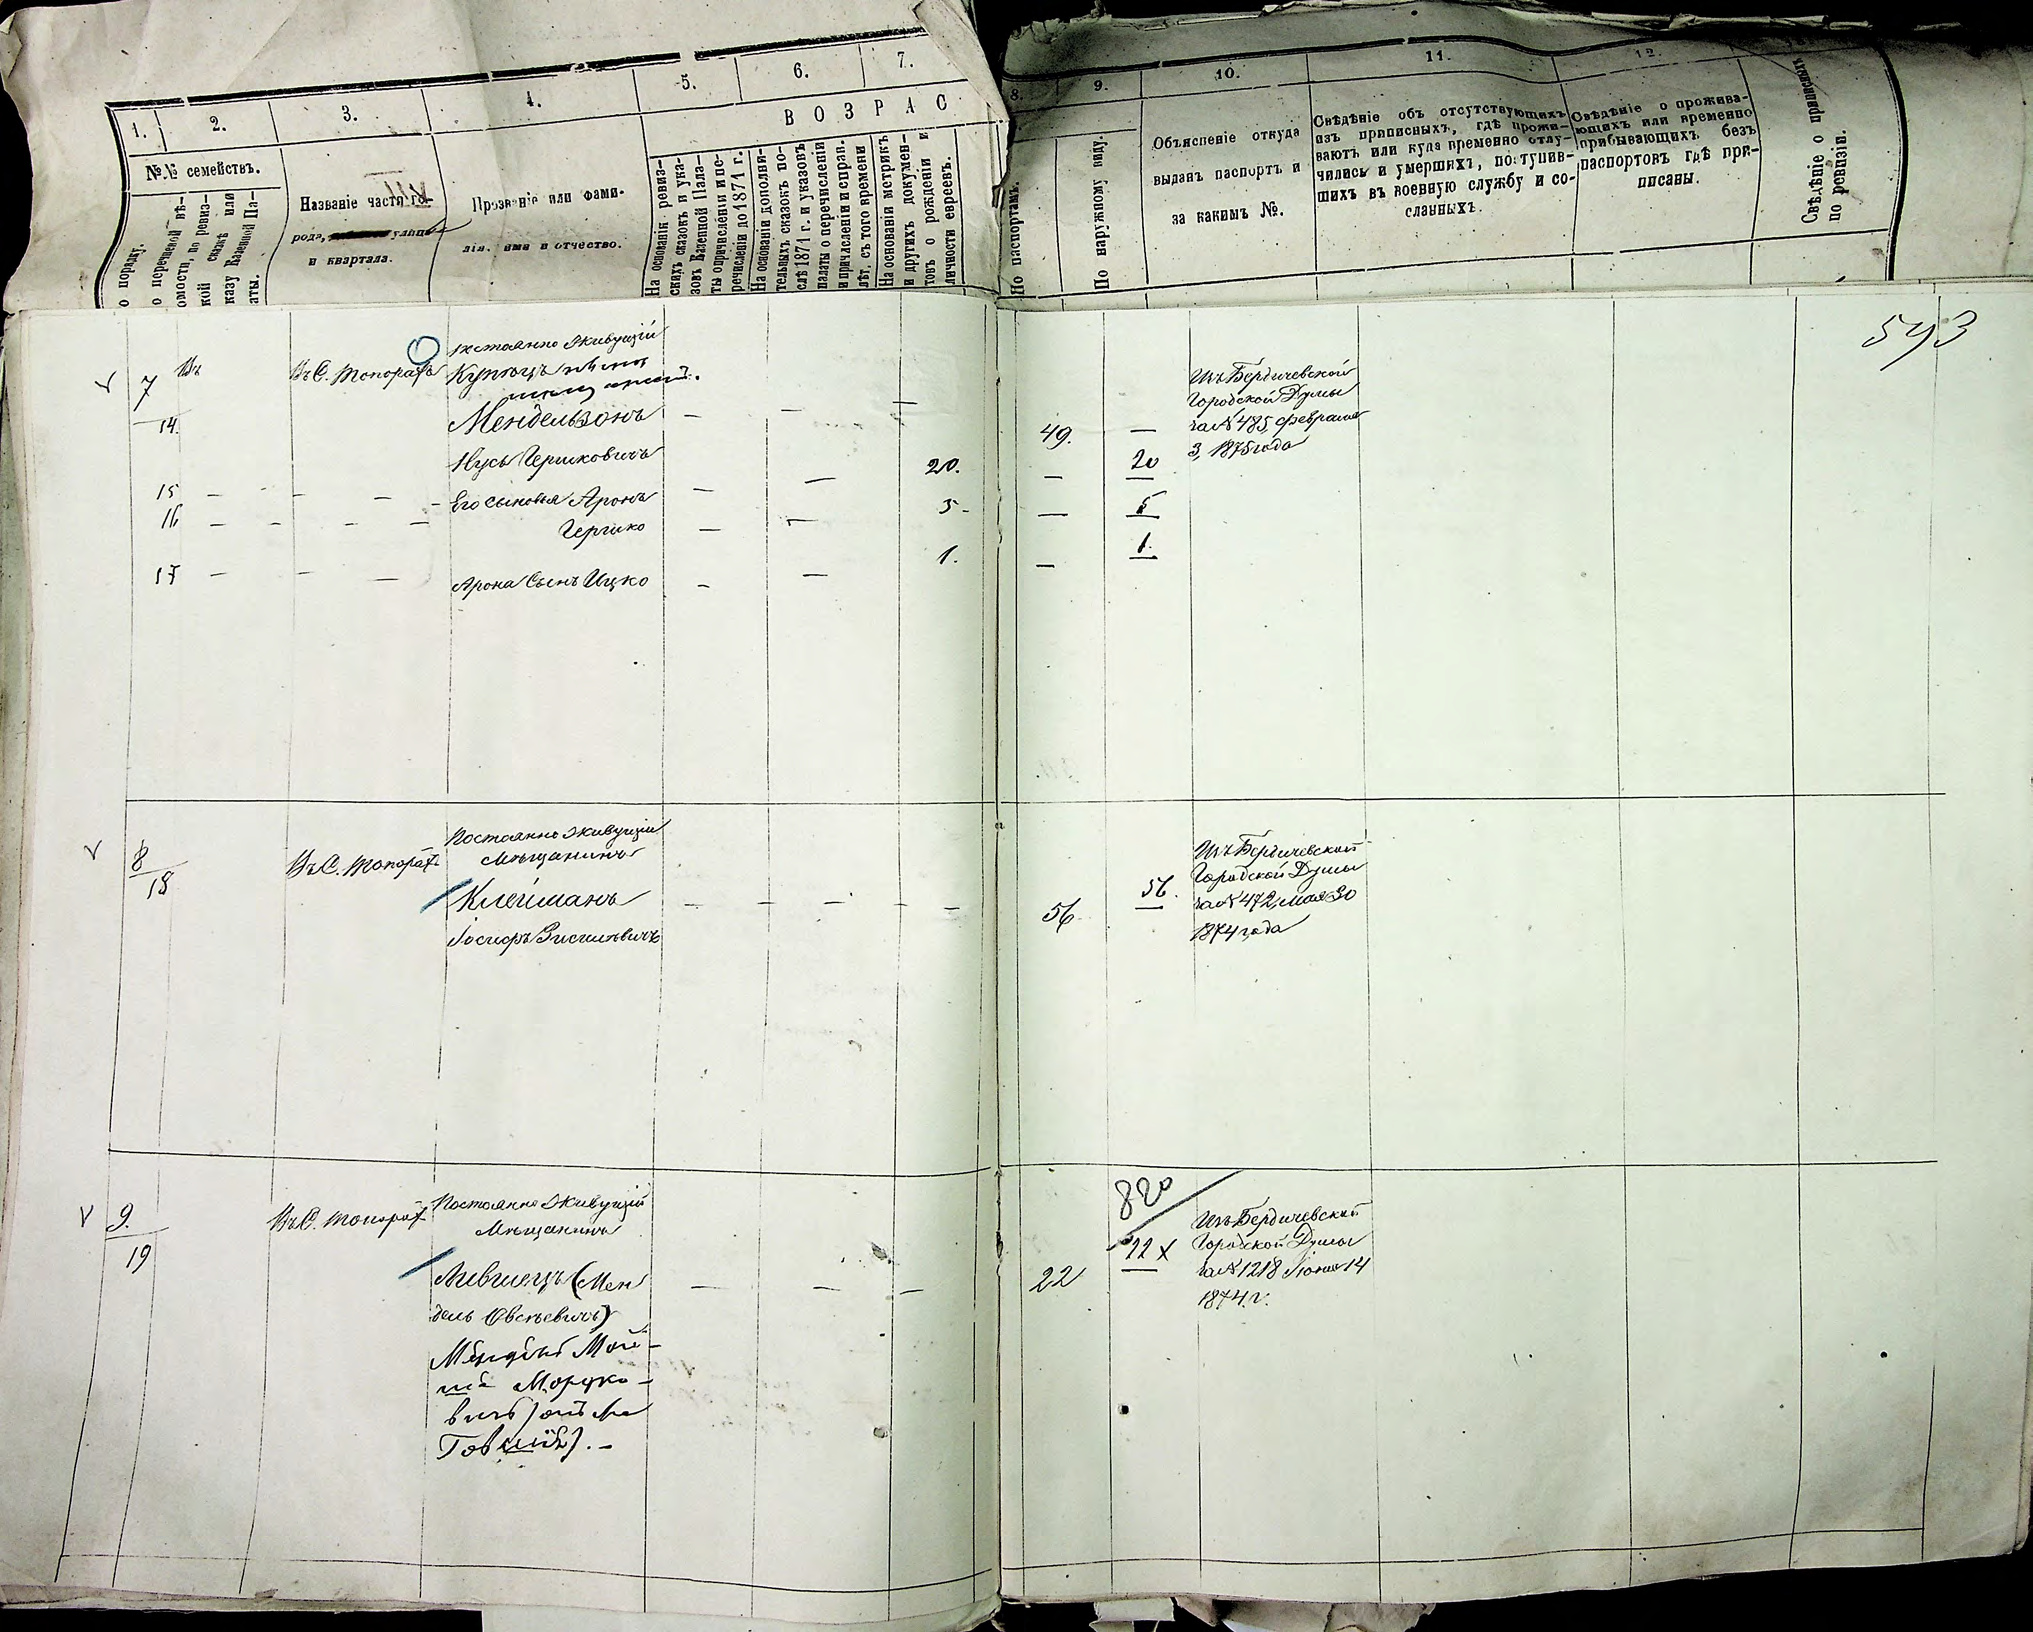 1.
2.
3.
4.
5.
6.
7.
ВОЗРАС
№№ семействъ.
о порядку.
о перечневой вѣ-
омости, по ревиз-
кой сказкѣ или
казу Казенной Па-
аты.
Названіе части го-
VIII
рода, улицы
и квартала.
Прозваніе или фами-
лія, имя и отчество.
На основаніи ревиз-
скихъ сказокъ и ука-
зовъ Казенной Пала-
ты о причисленіи и пе-
речисленіи до 1871 г.
На основаніи дополни-
тельныхъ сказокъ по-
слѣ 1871 г. и указовъ
палаты о перечисленіи
и причисленіи и справ.
лѣт, съ того времени
На основаніи метрикъ
и другихъ докумен-
товъ о рожденіи и
личности евреевъ.
8.
9.
10.
11.
12.
По паспортамъ.
По наружному виду.
Объясненіе откуда
выданъ паспортъ и
за какимъ №.
Свѣдѣніе объ отсутствующихъ
изъ приписныхъ, гдѣ прожи-
ваютъ или куда временно отлу-
чились и умершихъ, поступив-
шихъ въ военную службу и со-
сланныхъ.
Свѣдѣніе о прожива-
ющихъ или временно
прибывающихъ безъ
паспортовъ гдѣ при-
писаны.
Свѣдѣніе о приписныхъ
по ревизіи.
593
7
14.
Въ С. Топорахъ
Постоянно живущій
Купецъ
Мендельзонъ
Нусъ Гершковичъ
— — — 49. —
Изъ Бердичевской
Городской Думы
за № 485, февраля
3, 1875 года
15 — — — — Его сыновья Аронъ — — 20. — 20
16 — — — — Гершко — — 5 — — 5
17 — — — Арона сынъ Ицко — — 1. — 1.
8
18
Въ С. Топорахъ
Постоянно живущій
Мѣщанинъ
Клейманъ
Іосифъ Зисилевичъ
— — — — — 56 56.
Изъ Бердичевской
Городской Думы
за № 472, мая 30
1874 года
9.
19
Въ С. Топорахъ
Постоянно живущій
Мѣщанинъ
Лившецъ (Мен
дель Овсѣевичъ)
— — — 22 22 х
820
Изъ Бердичевской
Городской Думы
за № 1218 Іюня 14
1874 г.